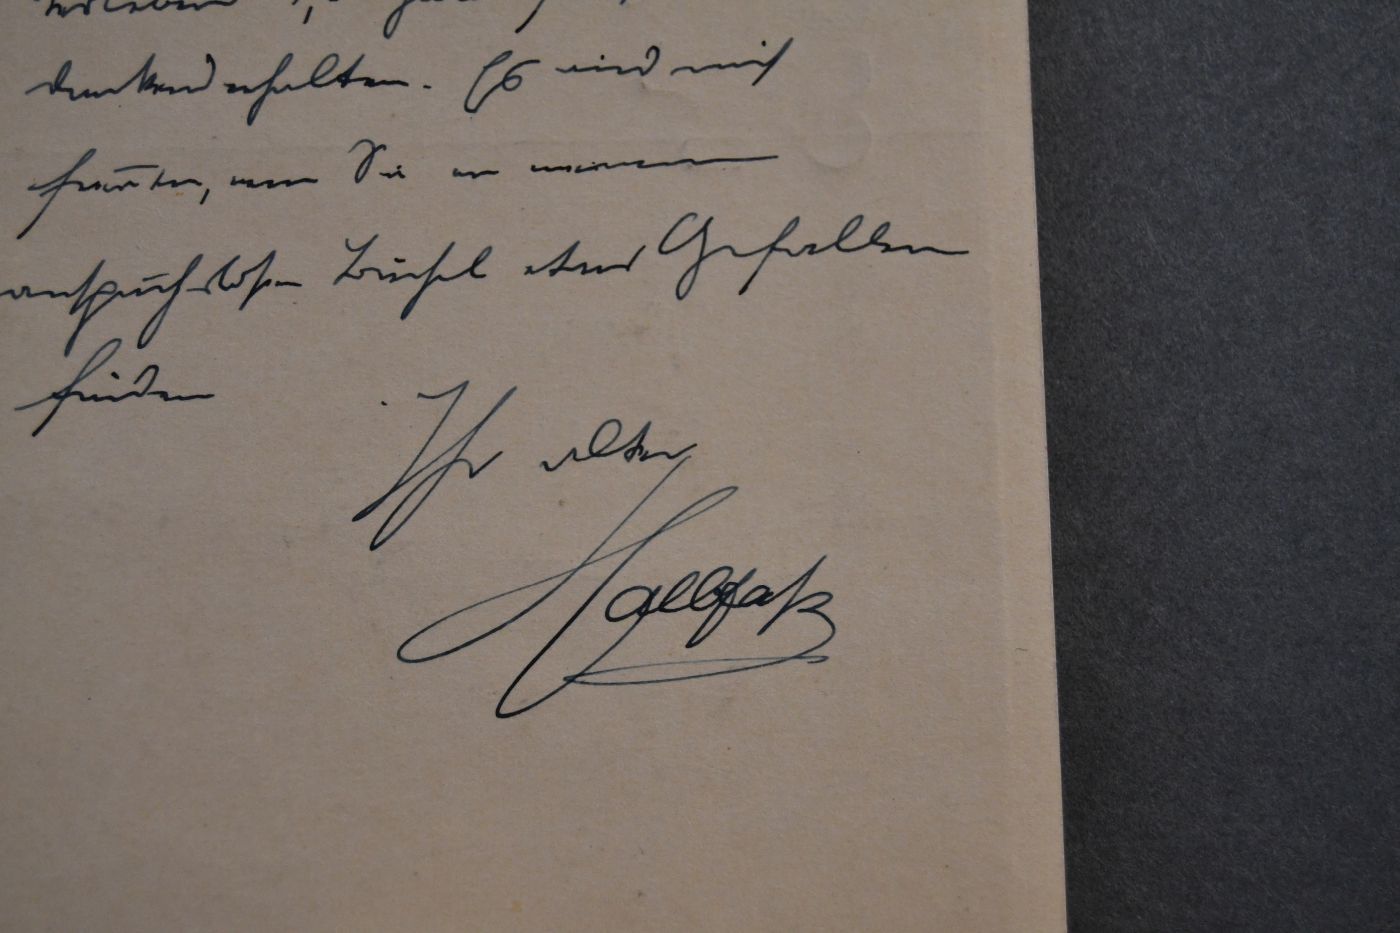 dankend erhalten. Es wird mich
freuen, wenn Sie an meinem
anspruchslosen Büchel etwas Gefallen
finden
Ihr alter